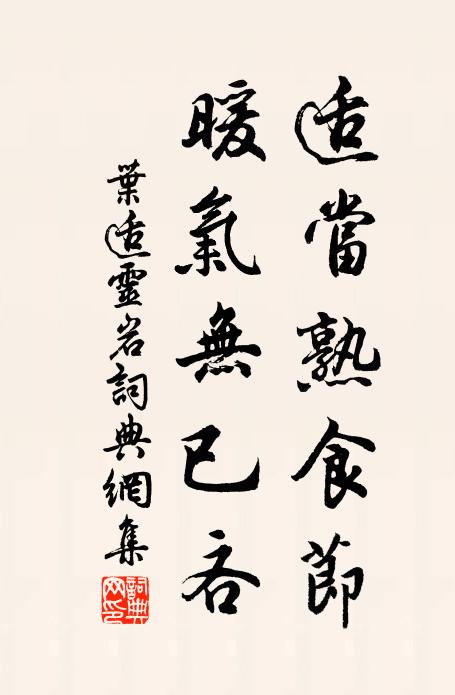 适當熟食節
暖氣無已吝
葉适靈岩詞典網集
詞典網印